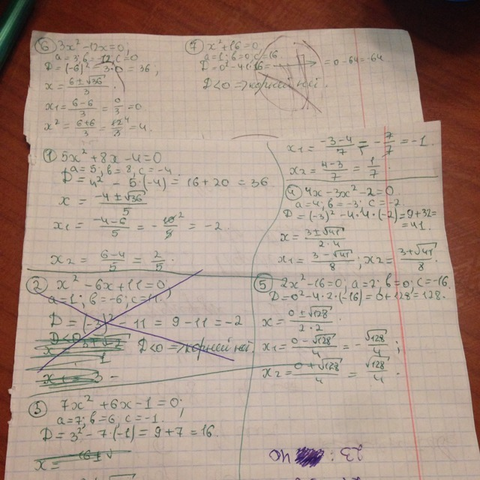 ⑥ 3x² - 12x = 0;
a = 3; b = -12; c = 0
D = (-6)² - 3·0 = 36;
x = (6 ± √36)/3
x₁ = (6-6)/3 = 0/3 = 0.
x² = (6+6)/3 = 12/3 = 4.
⑦ x² + 16 = 0;
a = 1; b = 0; c = 16
D = 0² - 4·1·16 = 0 - 64 = -64
D < 0 => корней нет.
① 5x² + 8x - 4 = 0
a = 5; b = 8; c = -4.
D = 4² - 5·(-4) = 16 + 20 = 36.
x = (-4 ± √36)/5
x₁ = (-4-6)/5 = -10/5 = -2
x₂ = (6-4)/5 = 2/5.
② x² - 6x + 11 = 0;
a = 1; b = -6; c = 11.
D = (-3)² - 11 = 9 - 11 = -2
D < 0 => корней нет
③ 7x² + 6x - 1 = 0;
a = 7; b = 6; c = -1.
D = 3² - 7·(-1) = 9 + 7 = 16.
x =
x₁ = (-3-4)/7 = -7/7 = -1.
x₂ = (4-3)/7 = 1/7
④ 4x - 3x² - 2 = 0
a = 4; b = -3; c = -2
D = (-3)² - 4·4·(-2) = 9 + 32 =
= 41.
x = (3 ± √41)/(2·4)
x₁ = (3 - √41)/8; x₂ = (3 + √41)/8.
⑤ 2x² - 16 = 0; a = 2; b = 0; c = -16.
D = 0² - 4·2·(-16) = 0 + 128 = 128.
x = (0 ± √128)/(2·2)
x₁ = (0 - √128)/4 = -√128/4;
x₂ = (0 + √128)/4 = √128/4.